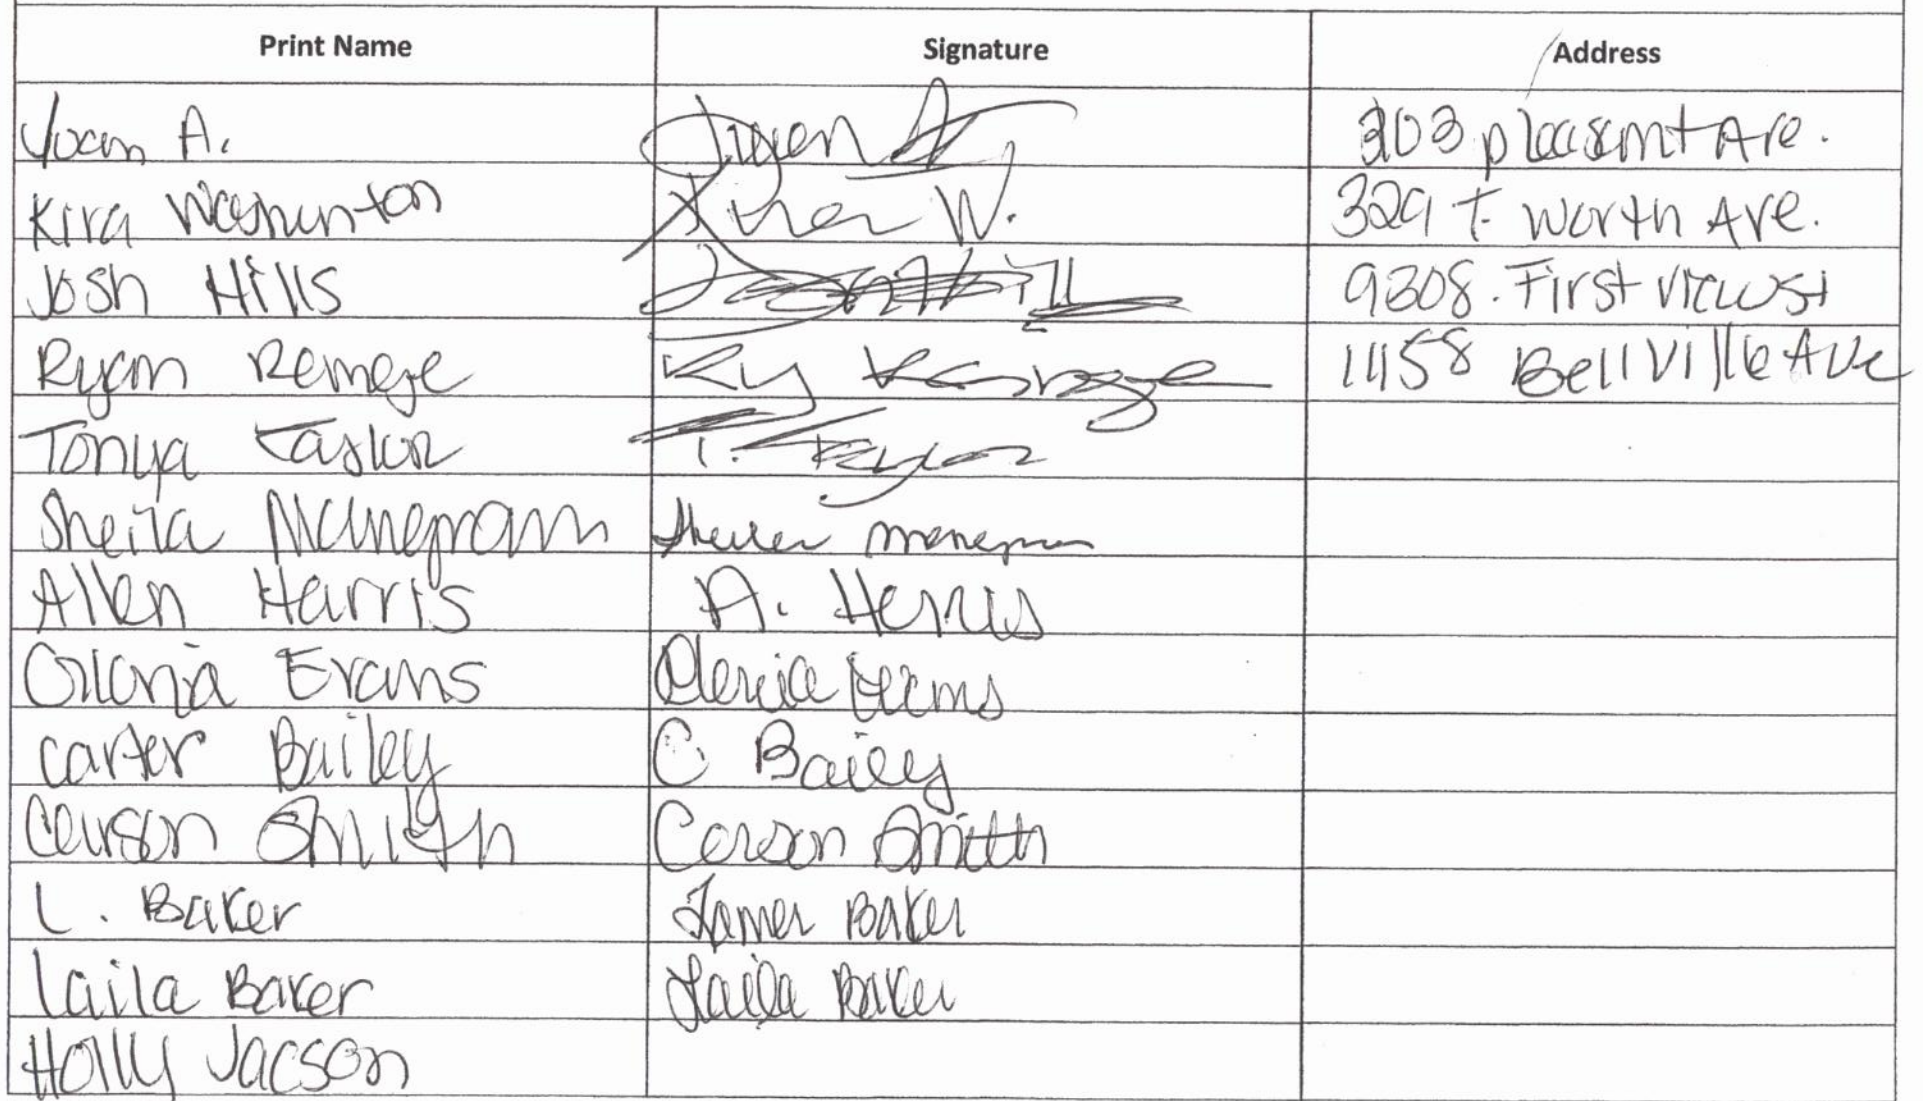 Print Name Signature Address
Joan A. 303 pleasant Ave.
Kira Washinton Kira W. 329 t. worth Ave.
Josh Hills 9308. First view st
Ryan Remege Ry 1158 Bellville Ave
Tonya Taylor T. Taylor
Sheila
Allen Harris A. Harris
Gloria Evans Gloria Evans
carter Bailey C Bailey
Carson Smith Carson Smith
L. Baker Baker
Laila Baker Laila Baker
Holly Jacson